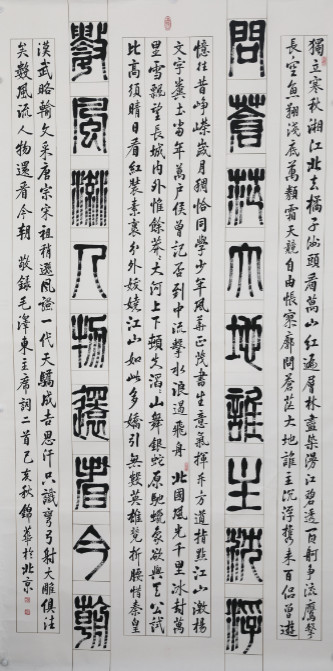 獨立寒秋湘江北去橘子洲頭看萬山紅遍層林盡染漫江碧透百舸爭流鷹擊
長空魚翔淺底萬類霜天競自由悵寥廓問蒼茫大地誰主沉浮攜來百侶曾遊
問蒼茫大地誰主沈浮
憶往昔崢嶸歲月稠恰同學少年風華正茂書生意氣揮斥方遒指點江山激揚
文字糞土當年萬戶侯曾記否到中流擊水浪遏飛舟 北國風光千里冰封萬
里雪飄望長城內外惟餘莽莽大河上下頓失滔滔山舞銀蛇原馳蠟象欲與天公試
比高須晴日看紅裝素裹分外妖嬈江山如此多嬌引無數英雄競折腰惜秦皇
數風流人物還看今朝
漢武略輸文采唐宗宋祖稍遜風騷一代天驕成吉思汗只識彎弓射大雕俱往
矣數風流人物還看今朝 敬錄毛澤東主席詞二首己亥秋錦華於北京